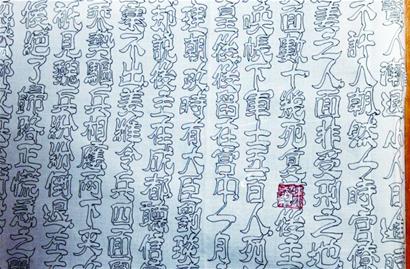 賢人漸退小人日進
不許入朝然一時官僚
妻之人面非受刑之地
面數十幾死復 後主
喚帳下軍士五百人列
皇后后留在宮中一月方
理朝政時有大臣劉琰
却說後主在成都聽信
意不出姜維令兵四面圍
乘勢驅兵相應兩下夾
祈見魏兵紛紛倒退左
後絕了歸路正慌之